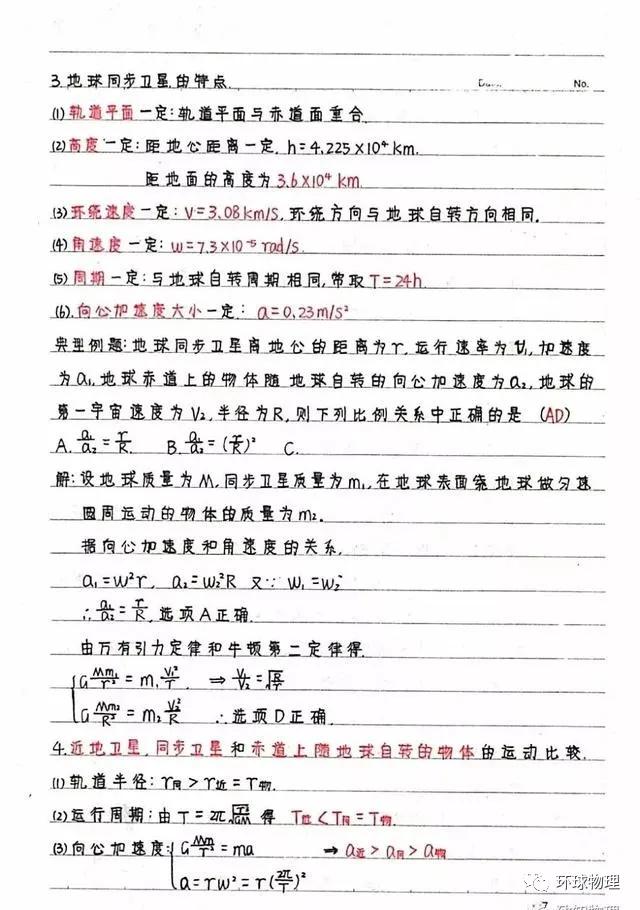 3.地球同步卫星的特点 No.
(1)轨道平面一定:轨道平面与赤道面重合.
(2)高度一定:距地心距离一定.h=4.225×10⁴km.
距地面的高度为3.6×10⁴km.
(3)环绕速度一定:V=3.08km/s.环绕方向与地球自转方向相同.
(4)角速度一定:w=7.3×10⁻⁵rad/s.
(5)周期一定:与地球自转周期相同,常取T=24h.
(6).向心加速度大小一定: a=0.23m/s²
典型例题:地球同步卫星离地心的距离为r,运行速率为V₁,加速度
为a₁,地球赤道上的物体随地球自转的向心加速度为a₂,地球的
第一宇宙速度为V₂,半径为R,则下列比例关系中正确的是 (AD)
A.a₁/a₂=r/R. B.a₁/a₂=(r/R)² C.
解:设地球质量为M,同步卫星质量为m₁,在地球表面绕地球做匀速
圆周运动的物体的质量为m₂.
据向心加速度和角速度的关系.
a₁=w₁²r, a₂=w₂²R 又∵w₁=w₂
∴a₁/a₂=r/R,选项A正确.
由万有引力定律和牛顿第二定律得.
GMm₁/r²=m₁V₁²/r. ⇒V₁/V₂=√R/r
GMm₂/R²=m₂V₂²/R ∴选项D正确.
4.近地卫星,同步卫星和赤道上随地球自转的物体的运动比较.
(1)轨道半径:r同>r近=r物.
(2)运行周期:由T=2π√r³/GM得 T近<T同=T物.
(3)向心加速度:GMm/r²=ma ⇒a近>a同>a物
a=rw²=r(2π/T)²
环球物理
7